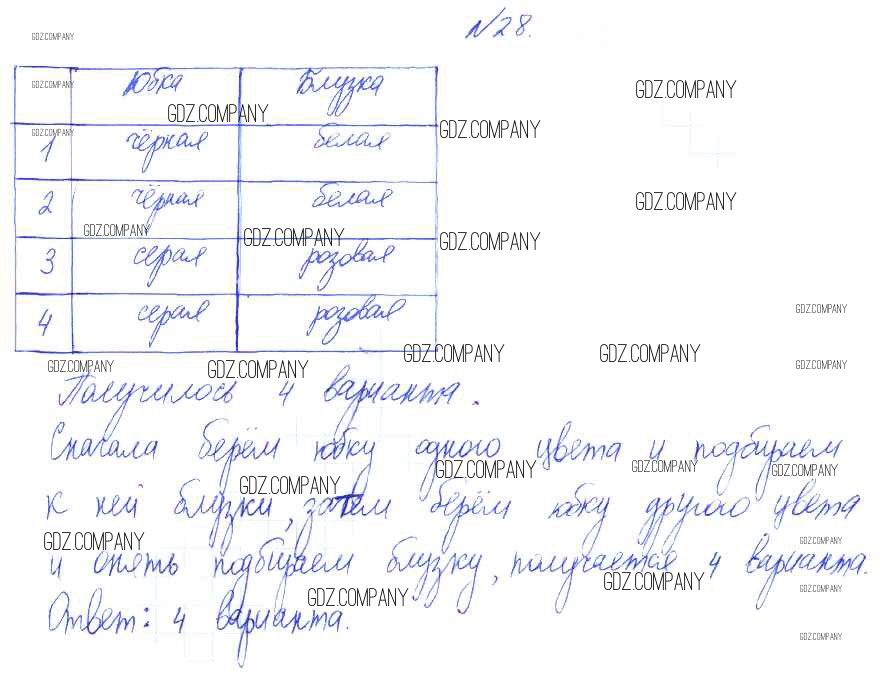 №28.
GDZ.COMPANY
Юбка Блузка
GDZ.COMPANY GDZ.COMPANY
GDZ.COMPANY GDZ.COMPANY
GDZ.COMPANY
1 чёрная белая
2 чёрная белая
GDZ.COMPANY
GDZ.COMPANY GDZ.COMPANY GDZ.COMPANY
3 серая розовая
4 серая розовая
GDZ.COMPANY
GDZ.COMPANY GDZ.COMPANY GDZ.COMPANY GDZ.COMPANY GDZ.COMPANY
Получилось 4 варианта.
Сначала берём юбку одного цвета и подбираем
GDZ.COMPANY GDZ.COMPANY GDZ.COMPANY
GDZ.COMPANY
к ней блузки, затем берём юбку другого цвета
GDZ.COMPANY GDZ.COMPANY
и опять подбираем блузку, получается 4 варианта.
GDZ.COMPANY GDZ.COMPANY GDZ.COMPANY
Ответ: 4 варианта.
GDZ.COMPANY